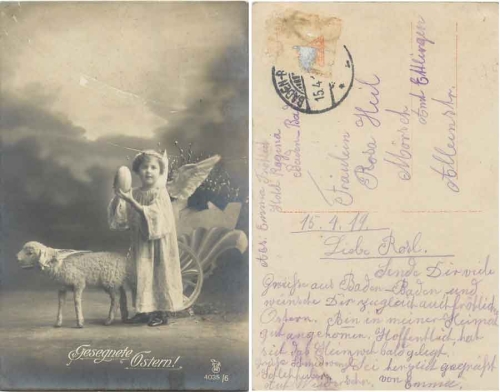 Gesegnete
Ostern!
4025/6
BADEN-B
15.4
Fräulein
Rosa Heil
Mörsch
Amt Ettlingen
Abs. Emma
Baden-Ba
15.4.19.
Liebe Rosl.
Sende Dir viele
Grüße aus Baden-Baden und
wünsche Dir zugleich auch fröhlich
Ostern. Bin in meiner Heimat
gut angekommen. Hoffentlich hat
sich das Heimweh bald gelegt.
sei herzlich gegrüßt
von Emma